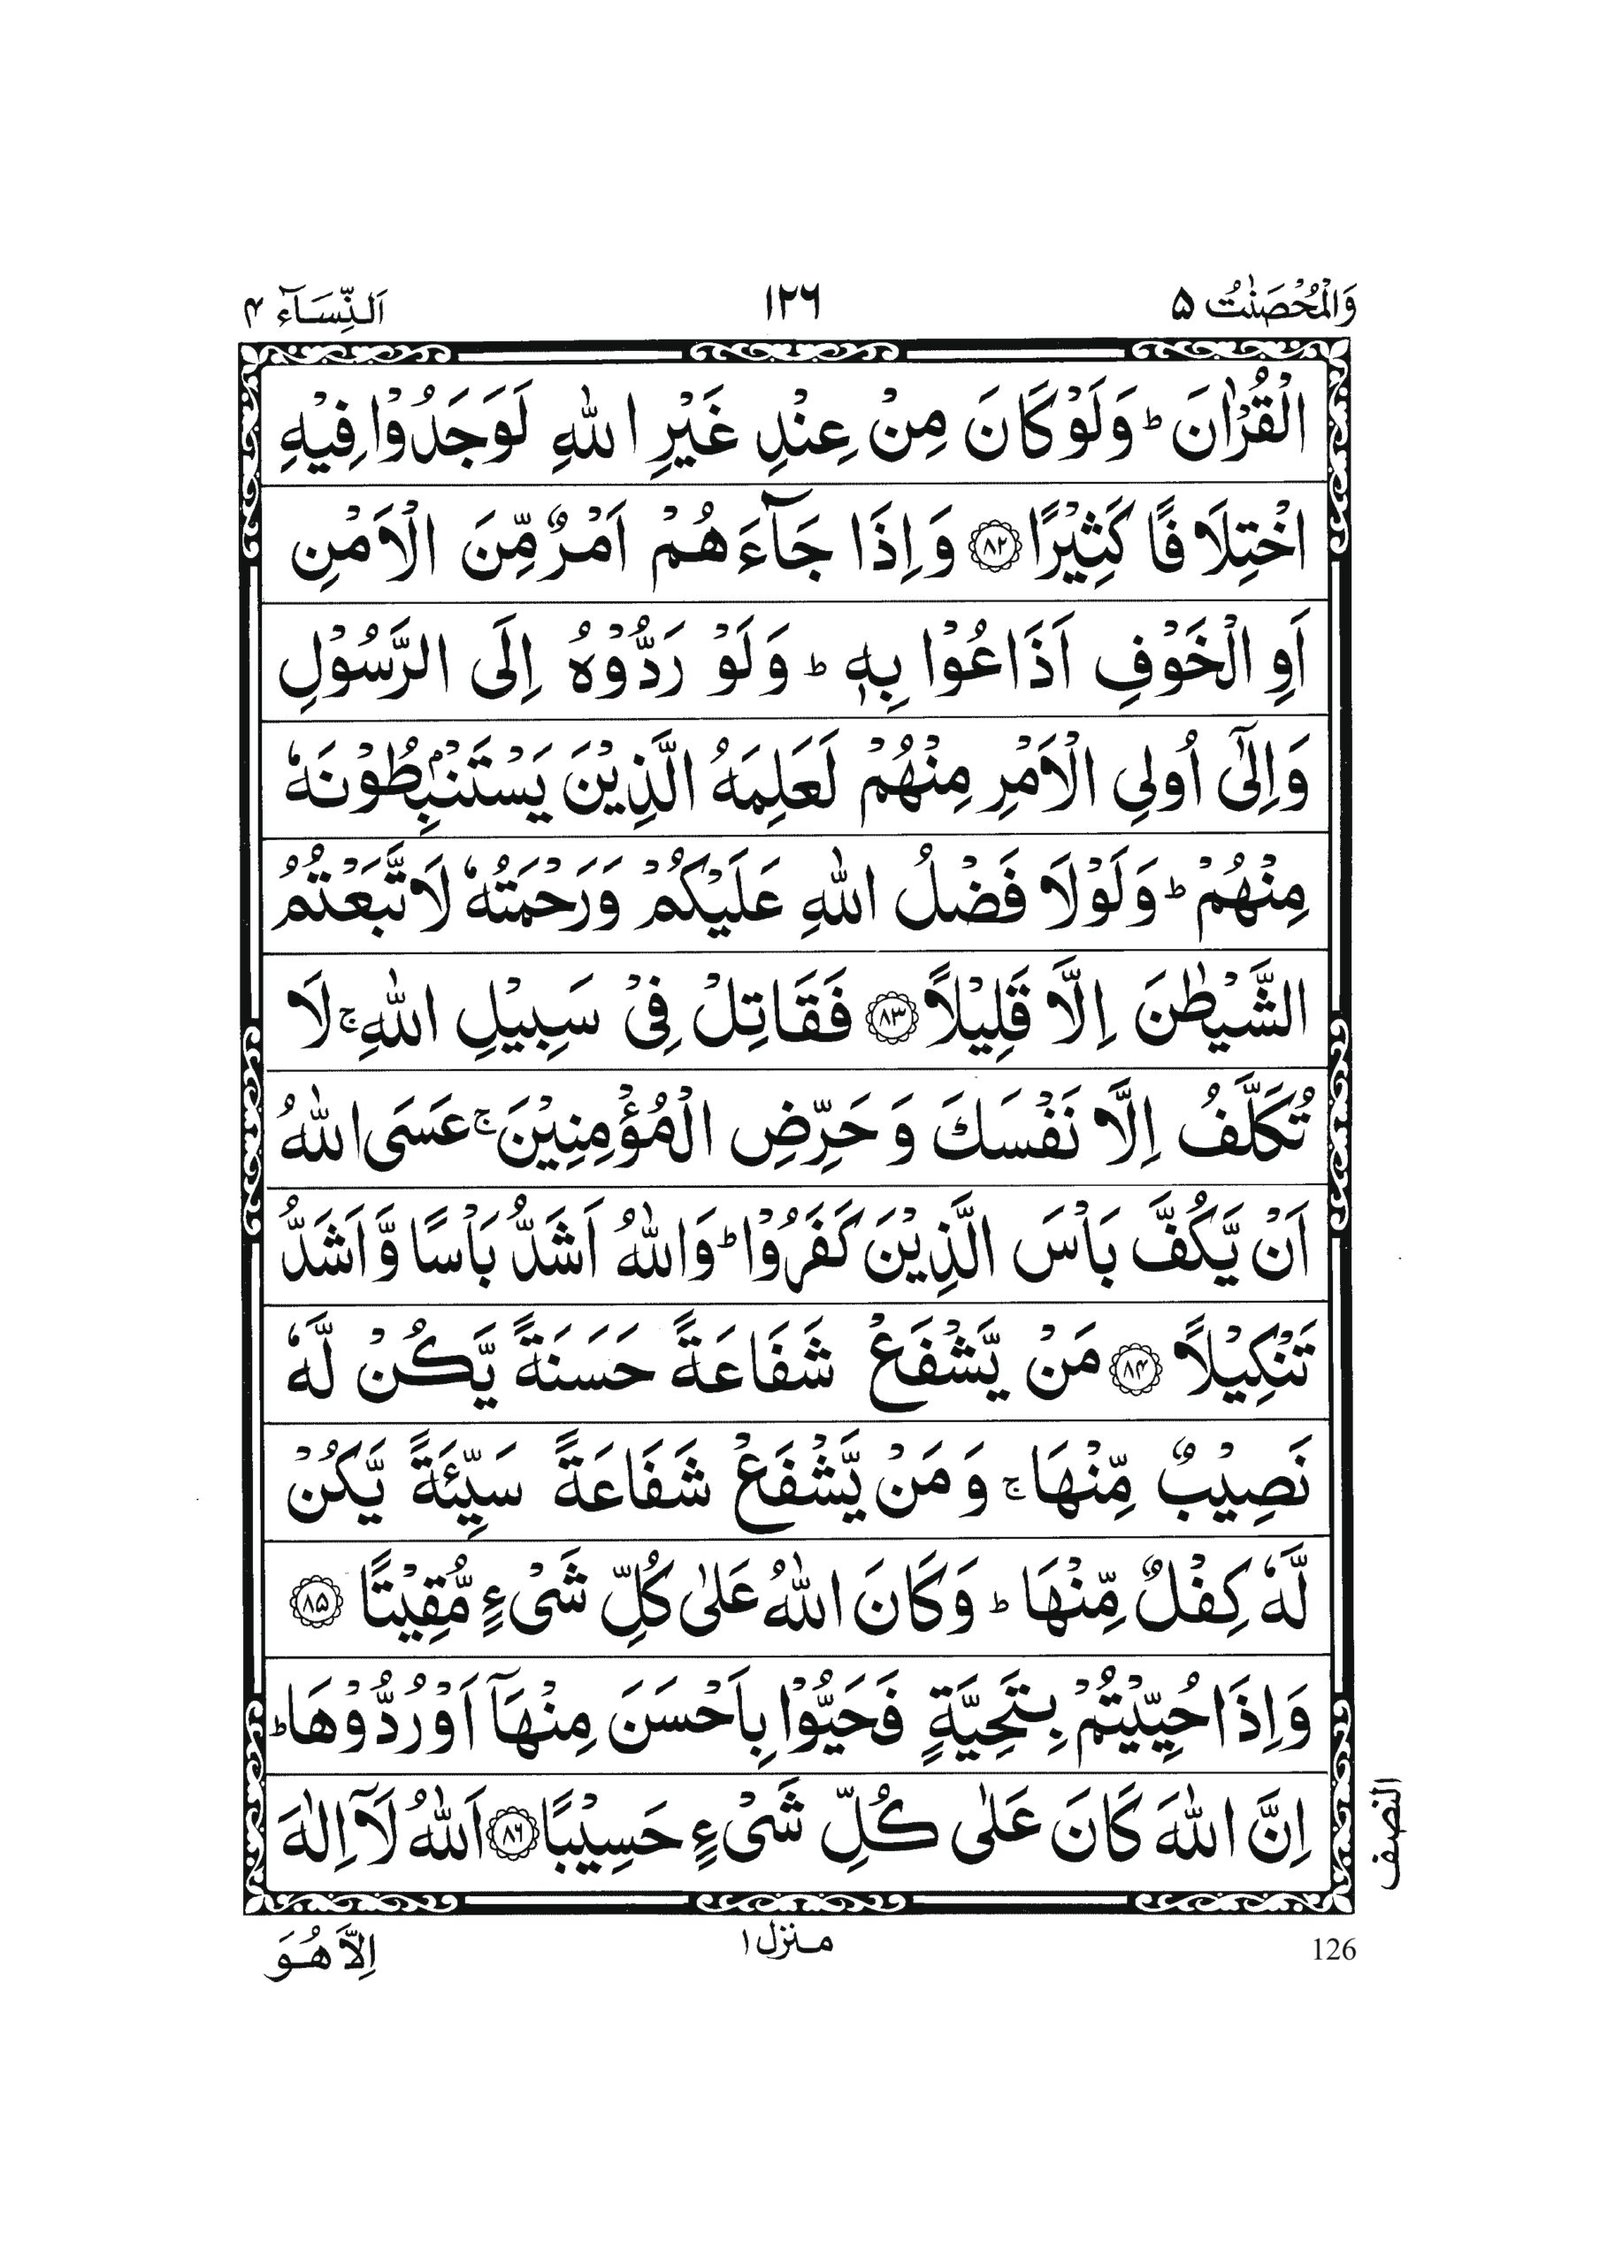 وَالْمُحْصَنٰتُ ۵
۱۲۶
اَلنِّسَآء ۴
الْقُرْاٰنَ ؕ وَلَوْ كَانَ مِنْ عِنْدِ غَيْرِ اللّٰهِ لَوَجَدُوْا فِيْهِ
اخْتِلَافًا كَثِيْرًا ﴿۸۲﴾ وَاِذَا جَآءَهُمْ اَمْرٌ مِّنَ الْاَمْنِ
اَوِ الْخَوْفِ اَذَاعُوْا بِهٖ ؕ وَلَوْ رَدُّوْهُ اِلَى الرَّسُوْلِ
وَاِلٰٓى اُولِي الْاَمْرِ مِنْهُمْ لَعَلِمَهُ الَّذِيْنَ يَسْتَنْۢبِطُوْنَهٗ
مِنْهُمْ ؕ وَلَوْلَا فَضْلُ اللّٰهِ عَلَيْكُمْ وَرَحْمَتُهٗ لَاتَّبَعْتُمُ
الشَّيْطٰنَ اِلَّا قَلِيْلًا ﴿۸۳﴾ فَقَاتِلْ فِيْ سَبِيْلِ اللّٰهِ ۚ لَا
تُكَلَّفُ اِلَّا نَفْسَكَ وَحَرِّضِ الْمُؤْمِنِيْنَ ۚ عَسَى اللّٰهُ
اَنْ يَّكُفَّ بَاْسَ الَّذِيْنَ كَفَرُوْا ؕ وَاللّٰهُ اَشَدُّ بَاْسًا وَّاَشَدُّ
تَنْكِيْلًا ﴿۸۴﴾ مَنْ يَّشْفَعْ شَفَاعَةً حَسَنَةً يَّكُنْ لَّهٗ
نَصِيْبٌ مِّنْهَا ۚ وَمَنْ يَّشْفَعْ شَفَاعَةً سَيِّئَةً يَّكُنْ
لَّهٗ كِفْلٌ مِّنْهَا ؕ وَكَانَ اللّٰهُ عَلٰى كُلِّ شَيْءٍ مُّقِيْتًا ﴿۸۵﴾
وَاِذَا حُيِّيْتُمْ بِتَحِيَّةٍ فَحَيُّوْا بِاَحْسَنَ مِنْهَآ اَوْ رُدُّوْهَا ؕ
اِنَّ اللّٰهَ كَانَ عَلٰى كُلِّ شَيْءٍ حَسِيْبًا ﴿۸۶﴾ اَللّٰهُ لَآ اِلٰهَ
النصف
126
منزل ۱
اِلَّا هُوَ